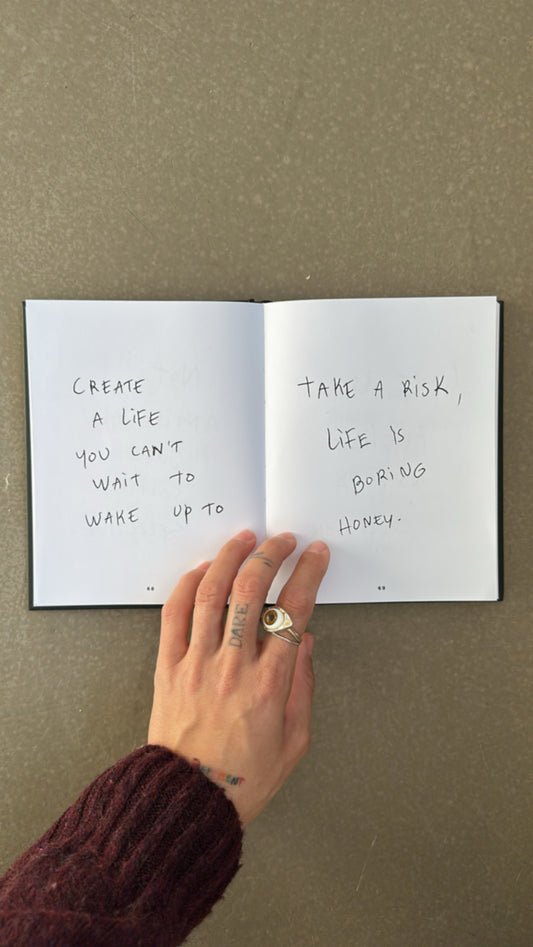 CREATE
A LiFE
YOU CAN'T
WAiT TO
WAKE UP TO
68
TAKE A RiSK,
LiFE IS
BORiNG
HONEY.
69
DARE